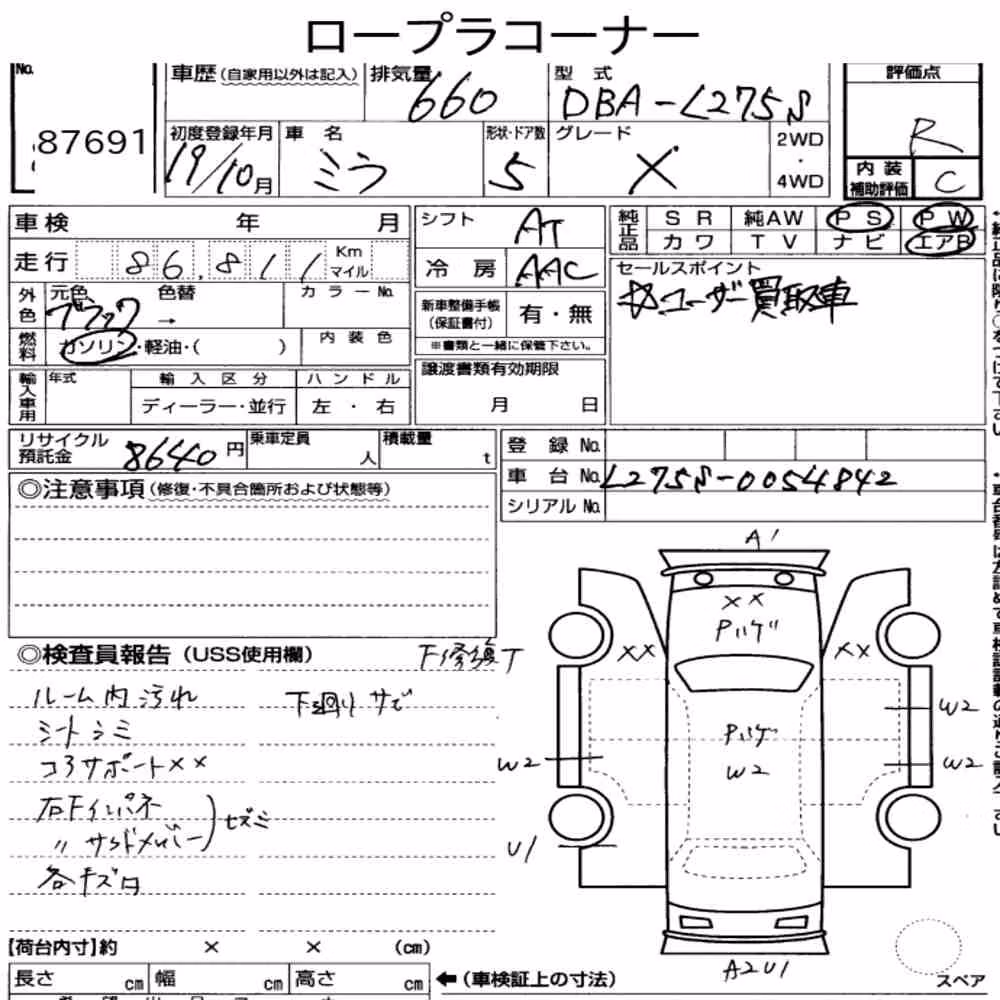 ロープラコーナー
No. 87691
車歴(自家用以外は記入) 排気量 660 型式 DBA-L275S 評価点 R
初度登録年月 19/10月 車名 ミラ 形状・ドア数 5 グレード X 2WD・4WD 内装補助評価 C
車検 年 月
シフト AT
純正品 SR 純AW PS PW
カワ TV ナビ エアB
走行 86,811 Km マイル
冷房 AAC
セールスポイント
☆ユーザー買取車
外色 元色 ブラック 色替 → カラーNo.
新車整備手帳(保証書付) 有・無
※書類と一緒に保管下さい。
燃料 ガソリン・軽油・( ) 内装色
譲渡書類有効期限
月 日
輸入車用 年式 輸入区分 ハンドル
ディーラー・並行 左・右
リサイクル預託金 8640円 乗車定員 人 積載量 t
登録No.
車台No. L275S-0054842
シリアルNo.
◎注意事項(修復・不具合箇所および状態等)
◎検査員報告(USS使用欄)
ルーム内汚れ 下廻りサビ
シートシミ
コアサポート××
右Fインパネ
〃 サイドメンバー
各キズ凹
A1
××
Pハゲ
××
××
Pハゲ
W2
W2
W2
W2
U1
A2U1
スペア
【荷台内寸】約 × × (cm)
長さ cm 幅 cm 高さ cm ←(車検証上の寸法)